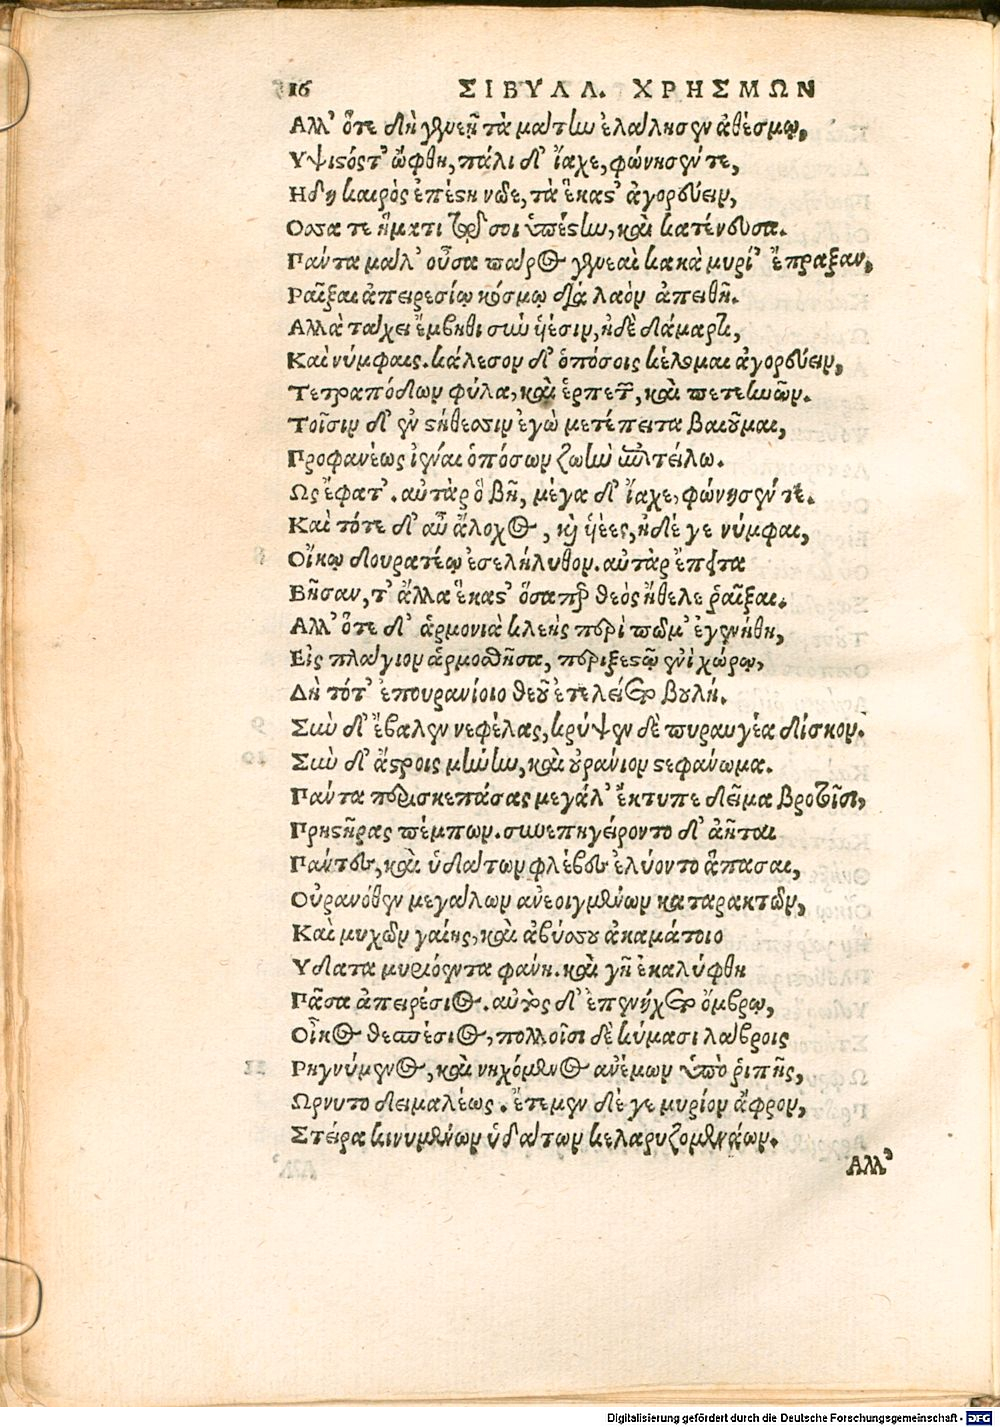 16 ΣΙΒΥΛΛ. ΧΡΗΣΜΩΝ
Αλλ' ὅτε δὴ γενεῇ τὰ μάτην ἐλάλησεν ἀθέσμῳ,
Υψιστός τ' ὤφθη, πάλι δ' ἴαχε, φώνησέν τε,
Ηδη καιρὸς ἐπέστη νῶε, τὰ ἕκαστ' ἀγορεύειν,
Οσσα τε ἤματι τῷδέ σοι ὑπέστην, καὶ κατένευσα.
Πάντα μάλ' οὖσα πάρος γενεαὶ κακὰ μυρί' ἔπραξαν,
Ραῖξαι ἀπειρεσίῳ κόσμῳ διὰ λαὸν ἀπειθῆ.
Αλλὰ τάχει ἔμβηθι σιὼ ὑέσιν, ἠδὲ δάμαρτι,
Καὶ νύμφαις. κάλεσον δ' ὁπόσοις κέλομαι ἀγορεύειν,
Τετραπόδων φύλα, καὶ ἑρπετὰ, καὶ πετεηνῶν.
Τοῖσιν δ' ἐν στήθεσσιν ἐγὼ μετέπειτα βαιοῦμαι,
Προφανέως ἰέναι ὁπόσων ζωὴν ἐπιτέλλω.
Ως ἔφατ'. αὐτὰρ ὁ βῆ, μέγα δ' ἴαχε, φώνησέν τε.
Καὶ τότε δ' αὖ ἄλοχος, καὶ ὑέες, ἠδέ γε νύμφαι,
Οἴκῳ δουρατέῳ ἐσελήλυθον. αὐτὰρ ἔπειτα
Βῆσαν, τ' ἄλλα ἕκαστ' ὅσαπερ θεὸς ἤθελε ῥαῖξαι.
Αλλ' ὅτε δ' ἁρμονιὰ κλεὴς περὶ πῶμ' ἐγενήθη,
Εἰς πλάγιον ἁρμοσθῆσα, περιξεστῷ ἐνὶ χώρῳ,
Δὴ τότ' ἐπουρανίοιο θεοῦ ἐτελείετο βουλή.
Σιὼ δ' ἔβαλεν νεφέλας, κρύψεν δὲ πυραυγέα δίσκον.
Σιὼ δ' ἄστροις μήνην, καὶ οὐράνιον στεφάνωμα.
Πάντα περισκεπάσας μεγάλ' ἔκτυπε δεῖμα βροτοῖσι,
Πρηστῆρας πέμπων. συνεπηγείροντο δ' ἀῆται
Πάντες, καὶ ὑδάτων φλέβες ἐλύοντο ἅπασαι,
Οὐρανόθεν μεγάλων ἀνεοιγμένων καταρακτῶν,
Καὶ μυχῶν γαίης, καὶ ἀβύσσου ἀκαμάτοιο
Υδατα μυριόεντα φάνη. καὶ γῆ ἐκαλύφθη
Πᾶσα ἀπειρέσιος. αὐτὸς δ' ἐπενήχετο ὄμβρῳ,
Οἶκος θεσπέσιος, πολλοῖσι δὲ κύμασι λάβροις
Ρηγνύμενος, καὶ νηχόμενος ἀνέμων ὑπὸ ῥιπῆς,
Ωρνυτο δειμαλέως. ἔτεμεν δέ γε μυρίον ἄφρον,
Στεῖρα κινυμένων ὑδάτων κελαρυζομενάων.
Αλλ'
Digitalisierung gefördert durch die Deutsche Forschungsgemeinschaft - DFG